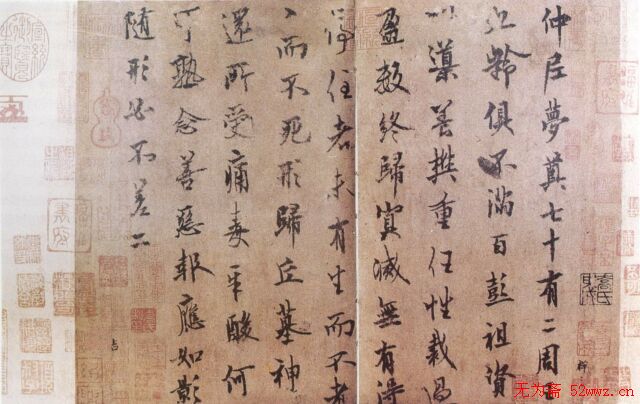 仲尼夢奠七十有二周
九齡俱不滿百彭祖資
以導養樊重任性裁過
盈數終歸冥滅無有得
停住者未有生而不老
〻而不死形歸丘墓神
還所受痛毒辛酸何
可熟念善惡報應如影
随形必不差二
无为斋 52wwz.cn